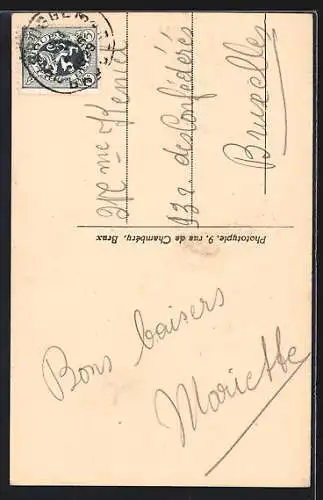 Mme
des Confédérés
Bruxelles
Phototypie, 9, rue de Chambéry, Brux
Bons baisers
Mariette